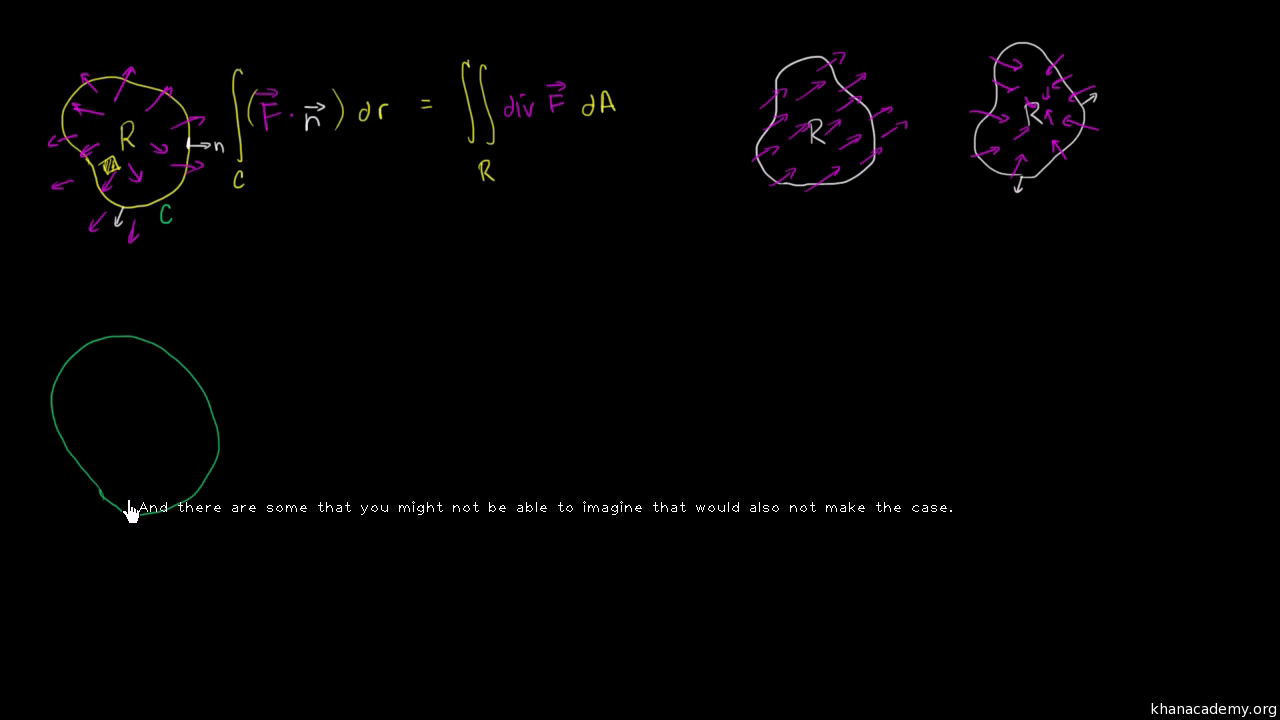 R n C
∫_C (F⃗ · n⃗) dr = ∬_R div F⃗ dA
R
R
And there are some that you might not be able to imagine that would also not make the case.
khanacademy.org